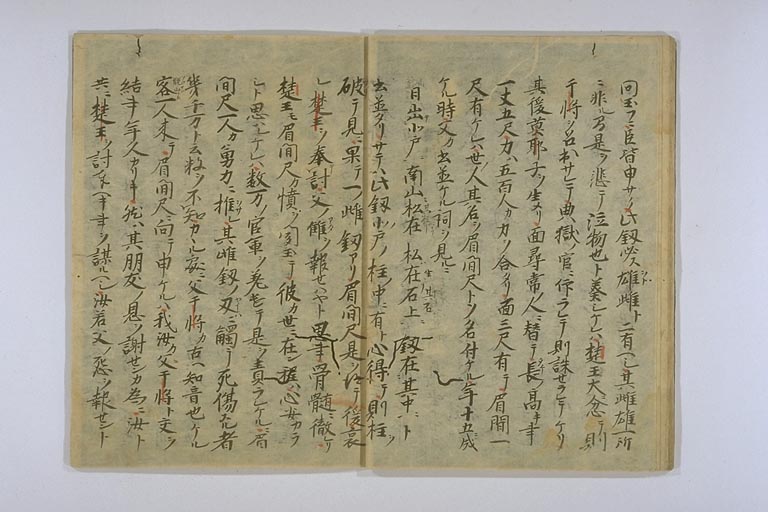 問玉フニ臣皆申サク此釼必ス雄雌ト二有ヘシ其雌雄一所
ニ非ル乃是ヲ悲テ泣物也ト奏シケレハ楚王大忿テ則
干将ヲ召出サレテ典獄ノ官ニ仰ラレテ則誅セラレテケリ
其後莫耶子ヲ生メリ面尋常ノ人ニ替テ長ノ高事
一丈五尺力ハ五百人カ力ヲ合タリ面三尺有テ眉間一
尺有ケレハ世ノ人其名ヲ眉間尺トソ名付ケル年十五歳
ケル時父カ書並ケル祠ヲ見ルニ
日出北戸 南山松在 松在石上 釼在其中 ト
書並タリサテハ此釼北戸ノ柱中ニ有ト心得テ則柱ヲ
破テ見ニ果テ一ノ雌釼アリ眉間尺是ヲ得テ後哀
レ楚王ヲ奉討父ノ讎ヲ報セハヤト思事骨髄ニ徹リ
楚王モ眉間尺カ憤ヲ聞玉テ彼カ世ニ在ン程ハ心安カラ
シト思ハレケレハ数万ノ官軍ヲ差遣テ是ヲ責ラレケルニ眉
間尺一人カ勇力ニ摧レ其雌釼ノ刃ニ觸テ死傷スル者
幾千万ト云数ヲ不知カヽル処ニ父干将カ古ノ知音也ケル
客一人来テ眉間尺ニ向テ申ケルハ我汝カ父干将ト交ヲ
結事年久カリキ然ハ其朋友ノ恩ヲ謝センカ為ニ汝ト
共ニ楚王ヲ討奉ヘキ事ヲ謀ルヘシ汝若父ノ怨ヲ報セント